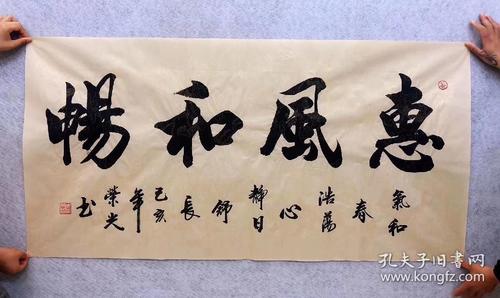 惠風和暢
氣和
春
浩蕩
心
靜日
舒
長
己亥
年
榮光
书
孔夫子旧書网
www.kongfz.com